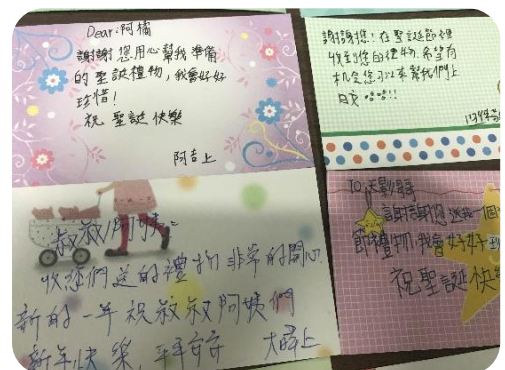 Dear:阿橘
謝謝您用心幫我準備
的聖誕禮物,我會好好
珍惜!
祝聖誕快樂
阿吉上
謝謝您!在聖誕節裡
收到您的禮物.希望有
机会您可以來幫我們上
日文 哈哈!!
叔叔/阿姨:
收您們送的禮物非常的開心
新的一年祝叔叔阿姨們
新年快樂,平平安安
上
TO.
謝謝您送我一個
節禮物,我會好好
祝聖誕快